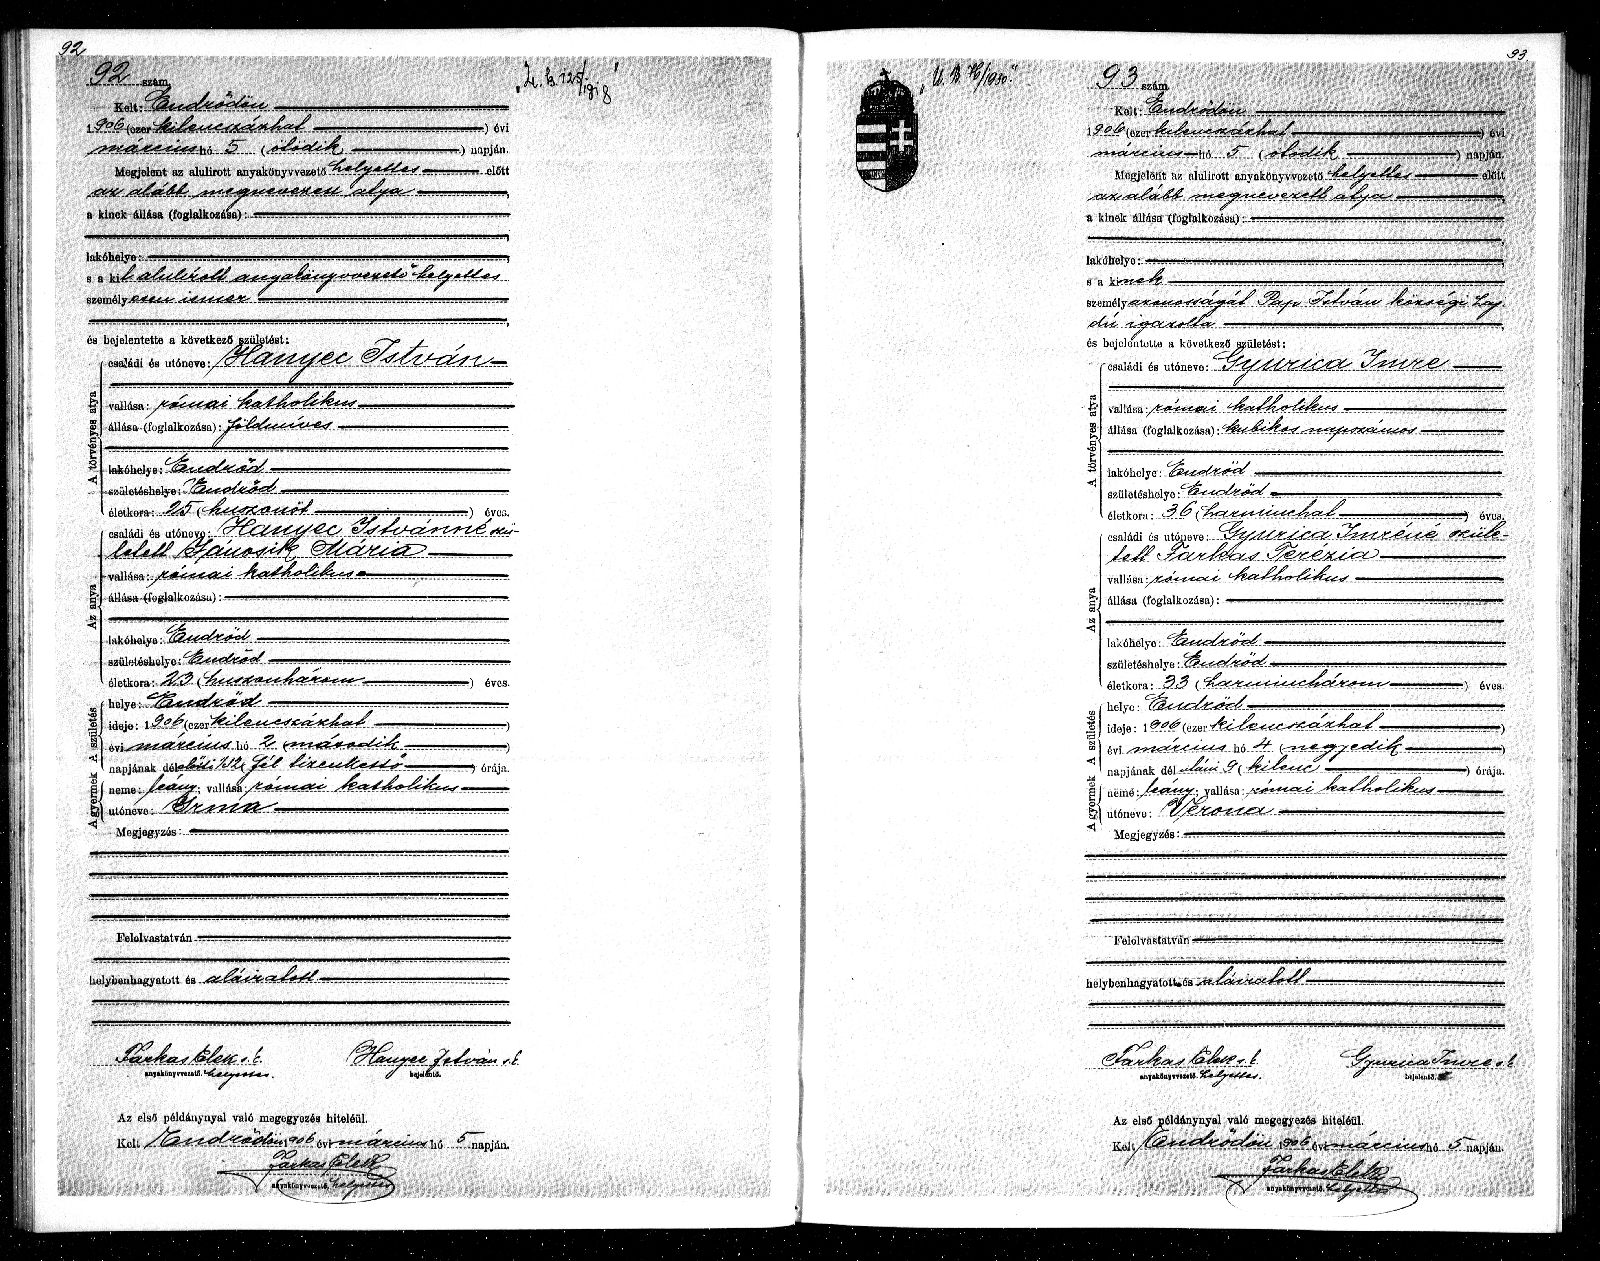 92
92 szám
Kelt: Endrődön
1906 (ezer kilencszázhat ) évi
március hó 5 (ötödik ) napján.
Megjelent az alulirott anyakönyvvezető helyettes előtt
az alább megnevezett atya
a kinek állása (foglalkozása):
lakóhelye:
s a kit alulirott anyakönyvvezető helyettes
személyesen ismer
és bejelentette a következő születést:
A törvényes atya
családi és utóneve: Hanyec István
vallása: római katholikus
állása (foglalkozása): földmíves
lakóhelye: Endrőd
születéshelye: Endrőd
életkora: 25 (huszonöt ) éves.
Az anya
családi és utóneve: Hanyec Istvánné szü-
letett Jánosik Mária
vallása: római katholikus
állása (foglalkozása):
lakóhelye: Endrőd
születéshelye: Endrőd
életkora: 23 (huszonhárom ) éves.
A születés
helye: Endrőd
ideje: 1906 (ezer kilencszázhat )
évi március hó 2 (második )
napjának délelőtti ½12 (fél tizenkettő ) órája.
A gyermek
neme: leány; vallása: római katholikus
utóneve: Irma
Megjegyzés:
Felolvastatván
helybenhagyatott és aláiratott
Farkas Elek s.k. Hanyec István s.k.
anyakönyvvezető. helyettes. bejelentő.
Az első példánynyal való megegyezés hiteléül.
Kelt Endrődön 1906 évi március hó 5 napján.
Farkas Elek
anyakönyvvezető. helyettes
93
"U. B. 76/1930."
93 szám
Kelt: Endrődön
1906 (ezer kilencszázhat ) évi
március hó 5 (ötödik ) napján.
Megjelent az alulirott anyakönyvvezető helyettes előtt
az alább megnevezett atya
a kinek állása (foglalkozása):
lakóhelye:
s a kinek
személyazonosságát Pap István községi haj-
dú igazolta
és bejelentette a következő születést:
A törvényes atya
családi és utóneve: Gyurica Imre
vallása: római katholikus
állása (foglalkozása): kubikos napszámos
lakóhelye: Endrőd
születéshelye: Endrőd
életkora: 36 (harminchat ) éves.
Az anya
családi és utóneve: Gyurica Imréné szüle-
tett Farkas Terézia
vallása: római katholikus
állása (foglalkozása):
lakóhelye: Endrőd
születéshelye: Endrőd
életkora: 33 (harminchárom ) éves.
A születés
helye: Endrőd
ideje: 1906 (ezer kilencszázhat )
évi március hó 4 (negyedik )
napjának dél utáni 9 (kilenc ) órája.
A gyermek
neme: leány; vallása: római katholikus
utóneve: Verona
Megjegyzés:
Felolvastatván
helybenhagyatott és aláiratott
Farkas Elek s.k. Gyurica Imre s.k.
anyakönyvvezető. helyettes. bejelentő.
Az első példánynyal való megegyezés hiteléül.
Kelt Endrődön 1906 évi március hó 5 napján.
Farkas Elek
anyakönyvvezető. helyettes